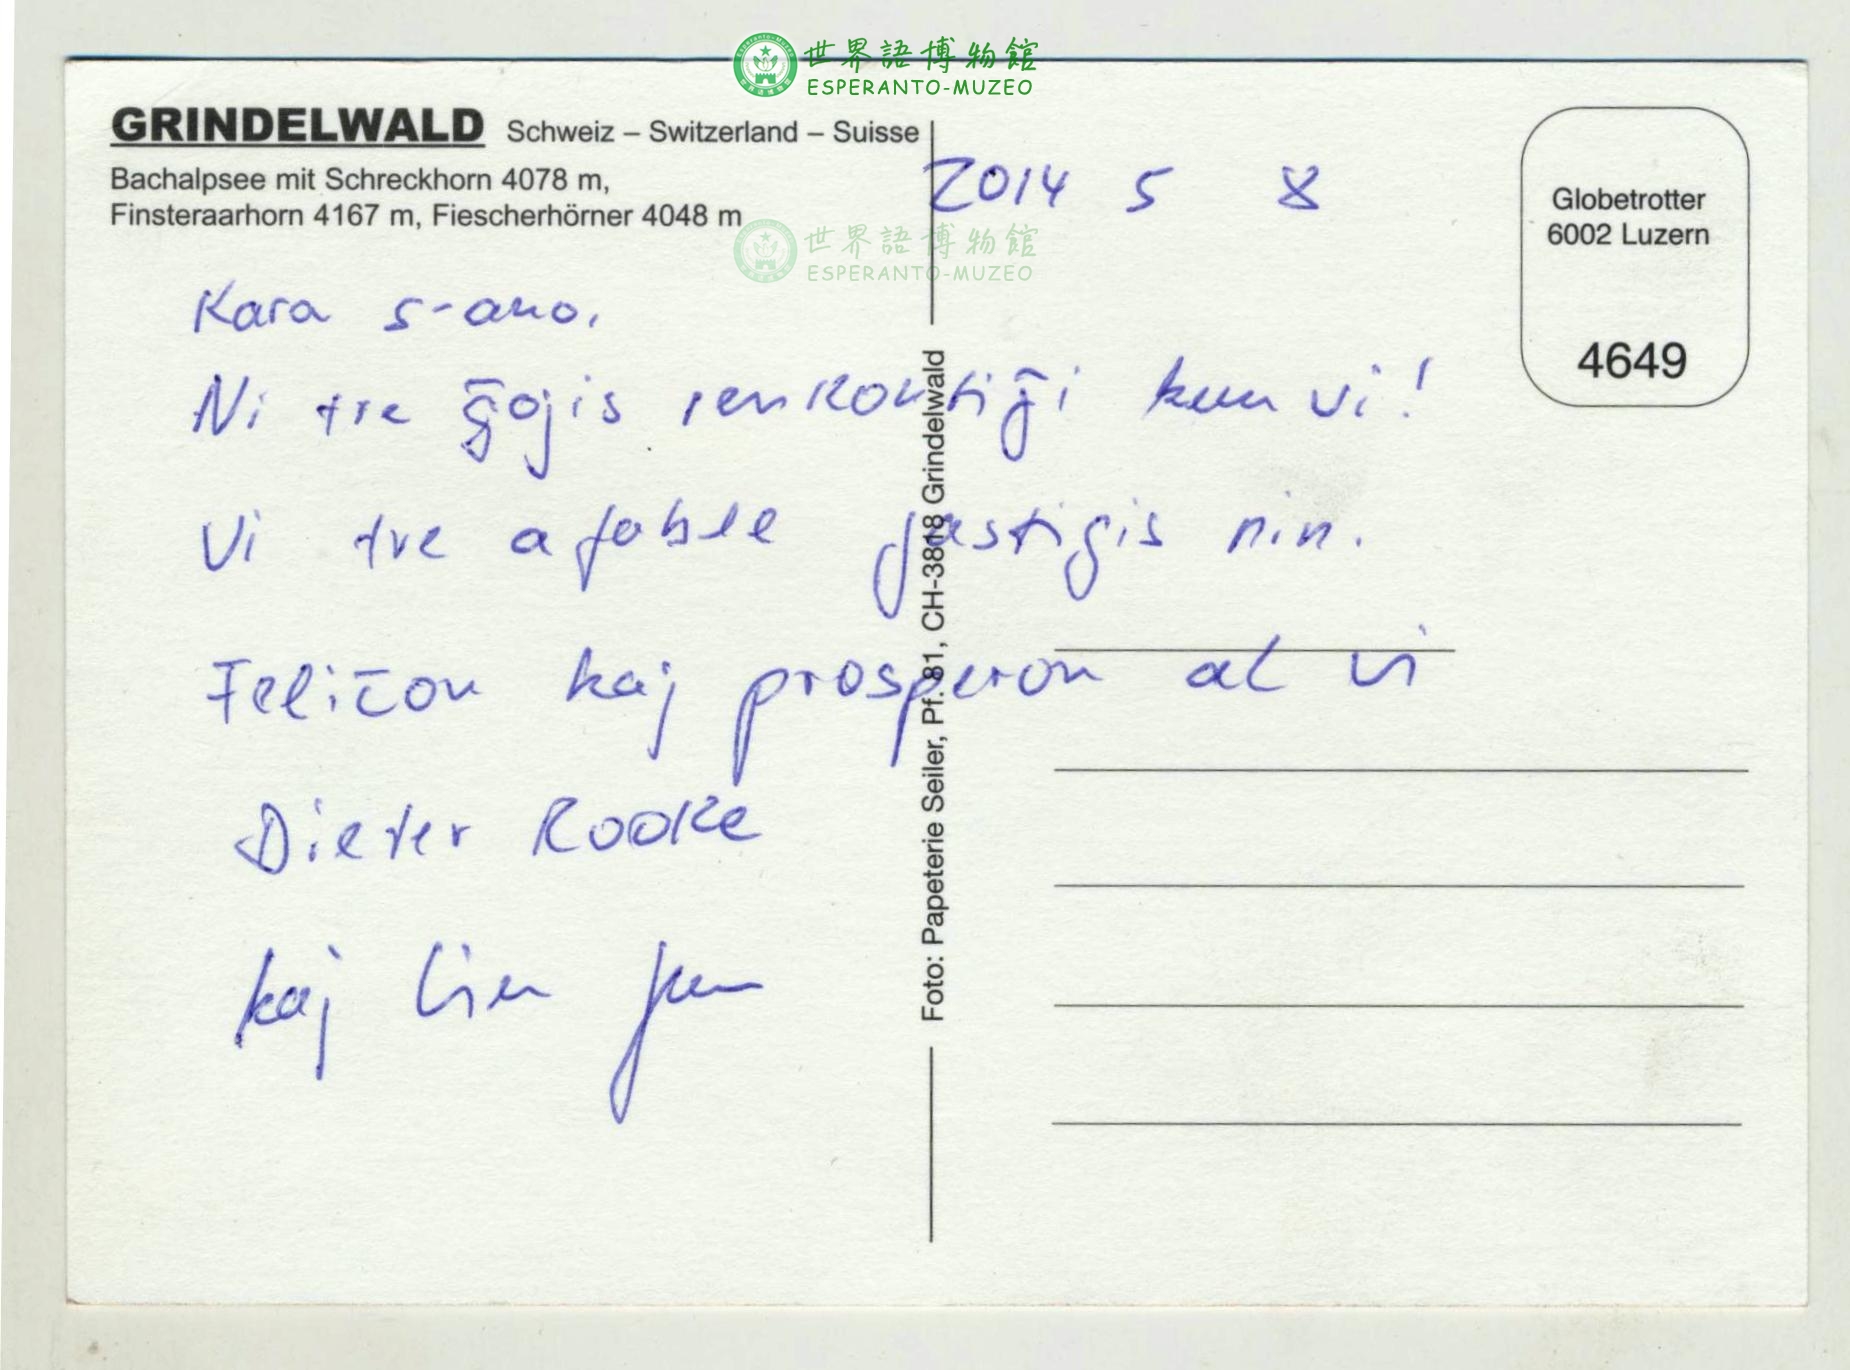 世界語博物館
ESPERANTO-MUZEO
GRINDELWALD Schweiz – Switzerland – Suisse
Bachalpsee mit Schreckhorn 4078 m,
Finsteraarhorn 4167 m, Fiescherhörner 4048 m
世界語博物館
ESPERANTO-MUZEO
2014 5 8
Globetrotter
6002 Luzern
4649
Kara s-ano,
Ni tre ĝojis renkontiĝi kun vi!
Vi tre afable gastigis nin.
Feliĉon kaj prosperon al vi
Dieter Rooke
kaj
Foto: Papeterie Seiler, Pf. 81, CH-3818 Grindelwald